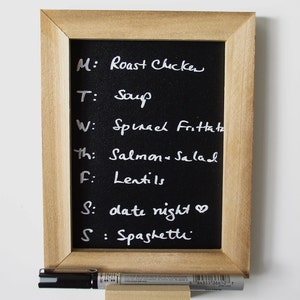 M: Roast Chicken
T: Soup
W: Spinach Frittata
Th: Salmon + Salad
F: Lentils
S: date night ♡
S: Spaghetti